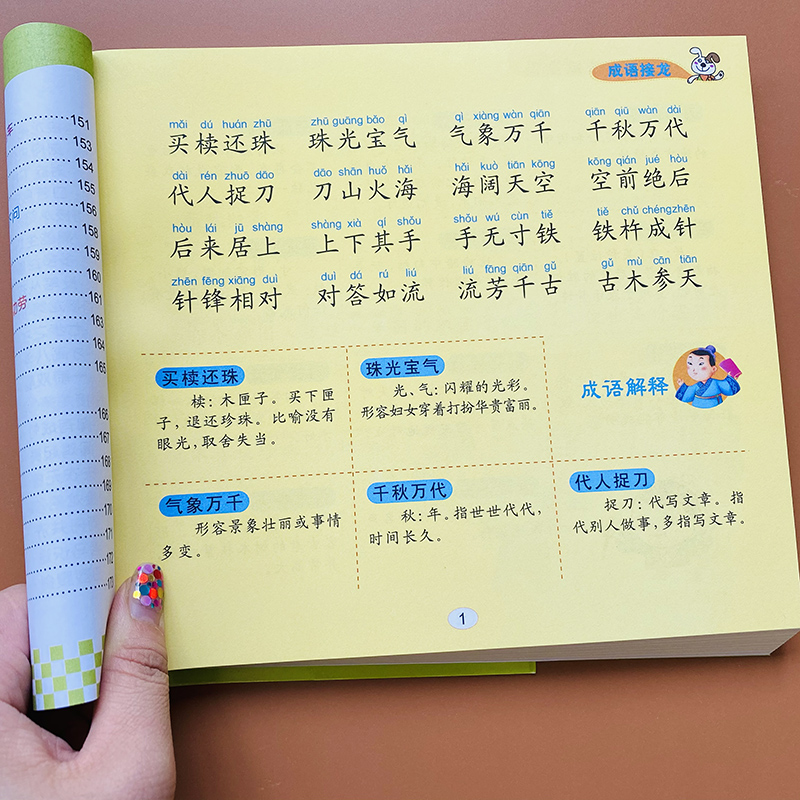 151
153
154
155
156
158
159
160
161
163
164
165
166
167
168
169
170
171
172
成语接龙
mǎi dú huán zhū zhū guāng bǎo qì qì xiàng wàn qiān qiān qiū wàn dài
买椟还珠 珠光宝气 气象万千 千秋万代
dài rén zhuō dāo dāo shān huǒ hǎi hǎi kuò tiān kōng kōng qián jué hòu
代人捉刀 刀山火海 海阔天空 空前绝后
hòu lái jū shàng shàng xià qí shǒu shǒu wú cùn tiě tiě chǔ chéng zhēn
后来居上 上下其手 手无寸铁 铁杵成针
zhēn fēng xiāng duì duì dá rú liú liú fāng qiān gǔ gǔ mù cān tiān
针锋相对 对答如流 流芳千古 古木参天
买椟还珠
椟:木匣子。买下匣
子,退还珍珠。比喻没有
眼光,取舍失当。
珠光宝气
光、气:闪耀的光彩。
形容妇女穿着打扮华贵富丽。
成语解释
气象万千
形容景象壮丽或事情
多变。
千秋万代
秋:年。指世世代代,
时间长久。
代人捉刀
捉刀:代写文章。指
代别人做事,多指写文章。
1